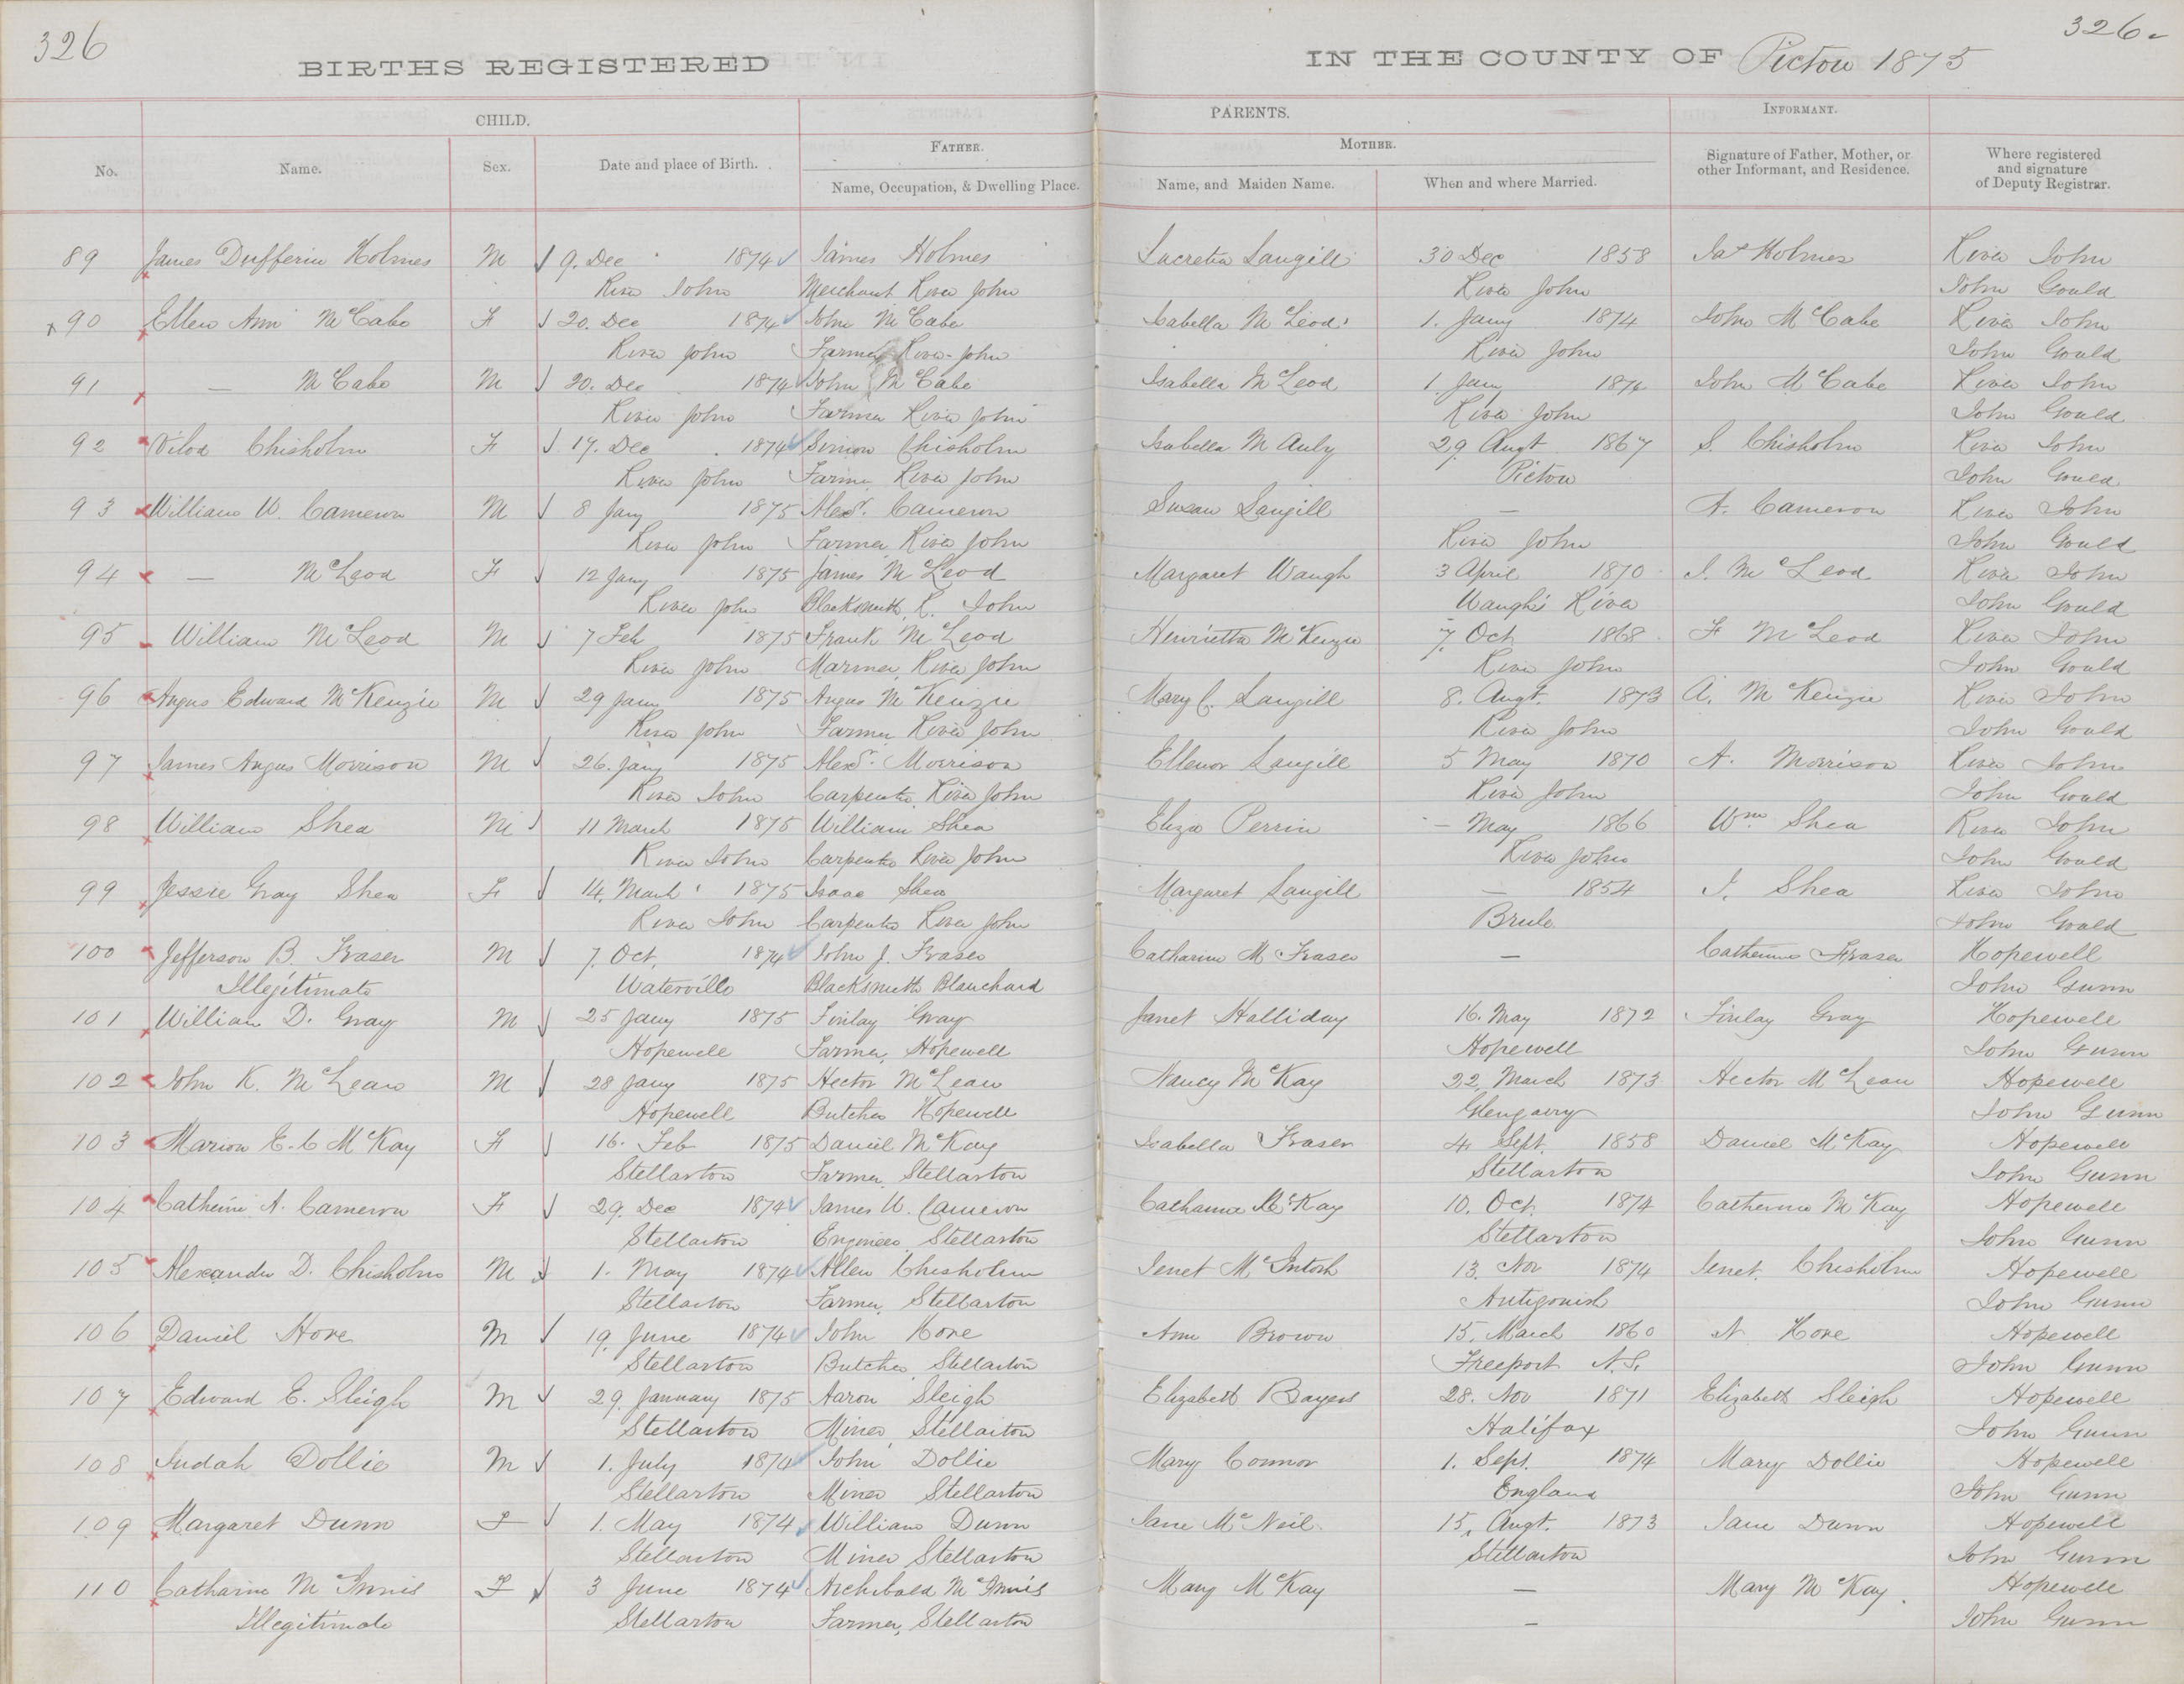 326
326
BIRTHS REGISTERED
IN THE COUNTY OF Pictou 1875
CHILD.
PARENTS.
INFORMANT.
No.
Name.
Sex.
Date and place of Birth.
FATHER.
Name, Occupation, & Dwelling Place.
MOTHER.
Name, and Maiden Name.
When and where Married.
Signature of Father, Mother, or other Informant, and Residence.
Where registered and signature of Deputy Registrar.
89 James Dufferin Holmes M 9. Dec 1874 James Holmes Lucretia Langill 30 Dec 1858 Jas Holmes River John
River John Merchant River John River John John Gould
90 Ellen Ann McCabe F 20. Dec 1874 John McCabe Isabella McLeod 1. Jany 1874 John McCabe River John
River John Farmer River John River John John Gould
91 — McCabe M 20. Dec 1874 John McCabe Isabella McLeod 1. Jany 1874 John McCabe River John
River John Farmer River John River John John Gould
92 Chisholm F 17. Dec 1874 Simon Chisholm Isabella McAuly 29. Augt 1867 S. Chisholm River John
River John Farmer River John Pictou John Gould
93 William W. Cameron M 8 Jany 1875 Alexr. Cameron Susan Langill — A. Cameron River John
River John Farmer, River John River John John Gould
94 — McLeod F 12 Jany 1875 James McLeod Margaret Waugh 3 April 1870 J. McLeod River John
River John Blacksmith, R. John Waugh's River John Gould
95 William McLeod M 7 Feb 1875 Frank McLeod Henrietta McKenzie 7. Oct 1868 F McLeod River John
River John Mariner, River John River John John Gould
96 Angus Edward McKenzie M 29 Jany 1875 Angus McKenzie Mary C. Langill 8. Augt. 1873 A. McKenzie River John
River John Farmer River John River John John Gould
97 James Angus Morrison M 26. Jany 1875 Alexr. Morrison Ellenor Langill 5 May 1870 A. Morrison River John
River John Carpenter, River John River John John Gould
98 William Shea M 11 March 1875 William Shea Eliza Perrin — May 1866 Wm Shea River John
River John Carpenter River John River John John Gould
99 Jessie Gray Shea F 14. March 1875 Isaac Shea Margaret Langill — 1854 I. Shea River John
River John Carpenter River John Brule John Gould
100 Jefferson B. Fraser M 7. Oct. 1874 John J. Fraser Catharine M Fraser — Catherine Fraser Hopewell
Illegitimate Waterville Blacksmith Blanchard John Gunn
101 William D. Gray M 25 Jany 1875 Finlay Gray Janet Halliday 16. May 1872 Finlay Gray Hopewell
Hopewell Farmer, Hopewell Hopewell John Gunn
102 John K. McLean M 28 Jany 1875 Hector McLean Nancy McKay 22. March 1873 Hector McLean Hopewell
Hopewell Butcher Hopewell Glengarry John Gunn
103 Marion E. C McKay F 16. Feb 1875 Daniel McKay Isabella Fraser 4. Sept. 1858 Daniel McKay Hopewell
Stellarton Farmer, Stellarton Stellarton John Gunn
104 Catherine A. Cameron F 29. Dec 1874 James W. Cameron Catharine McKay 10. Oct. 1874 Catherine McKay Hopewell
Stellarton Engineer, Stellarton Stellarton John Gunn
105 Alexander D. Chisholm M 1. May 1874 Allen Chisholm Jenet McIntosh 13. Nov 1874 Jenet. Chisholm Hopewell
Stellarton Farmer, Stellarton Antigonish John Gunn
106 Daniel Hore M 19. June 1874 John Hore Ann Brown 15. March 1860 Hore Hopewell
Stellarton Butcher, Stellarton Freeport N.S. John Gunn
107 Edward E. Sleigh M 29. January 1875 Aaron Sleigh Elizabeth Bayers 28. Nov 1871 Elizabeth Sleigh Hopewell
Stellarton Miner, Stellarton Halifax John Gunn
108 Judah Dollie M 1. July 1874 John Dollie Mary Connor 1. Sept. 1874 Mary Dollie Hopewell
Stellarton Miner Stellarton England John Gunn
109 Margaret Dunn F 1. May 1874 William Dunn Jane McNeil 15. Augt. 1873 Jane Dunn Hopewell
Stellarton Miner Stellarton Stellarton John Gunn
110 Catharine McInnis F 3 June 1874 Archibald McInnis Mary McKay — Mary McKay. Hopewell
Illegitimate Stellarton Farmer, Stellarton — John Gunn